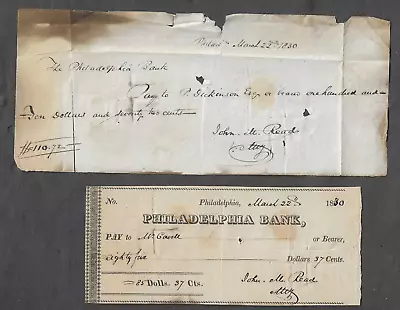 Philad^a March 22^d 1830
The Philadelphia Bank
Pay to P. Dickinson Esq or bearer one hundred and
Ten Dollars and seventy two cents
John. M. Read
$110.72 Atty
No. Philadelphia, March 22^d 1830
PHILADELPHIA BANK,
PAY to Mr or Bearer,
Eighty five Dollars 37 Cents.
85 Dolls. 37 Cts. John. M. Read
Atty